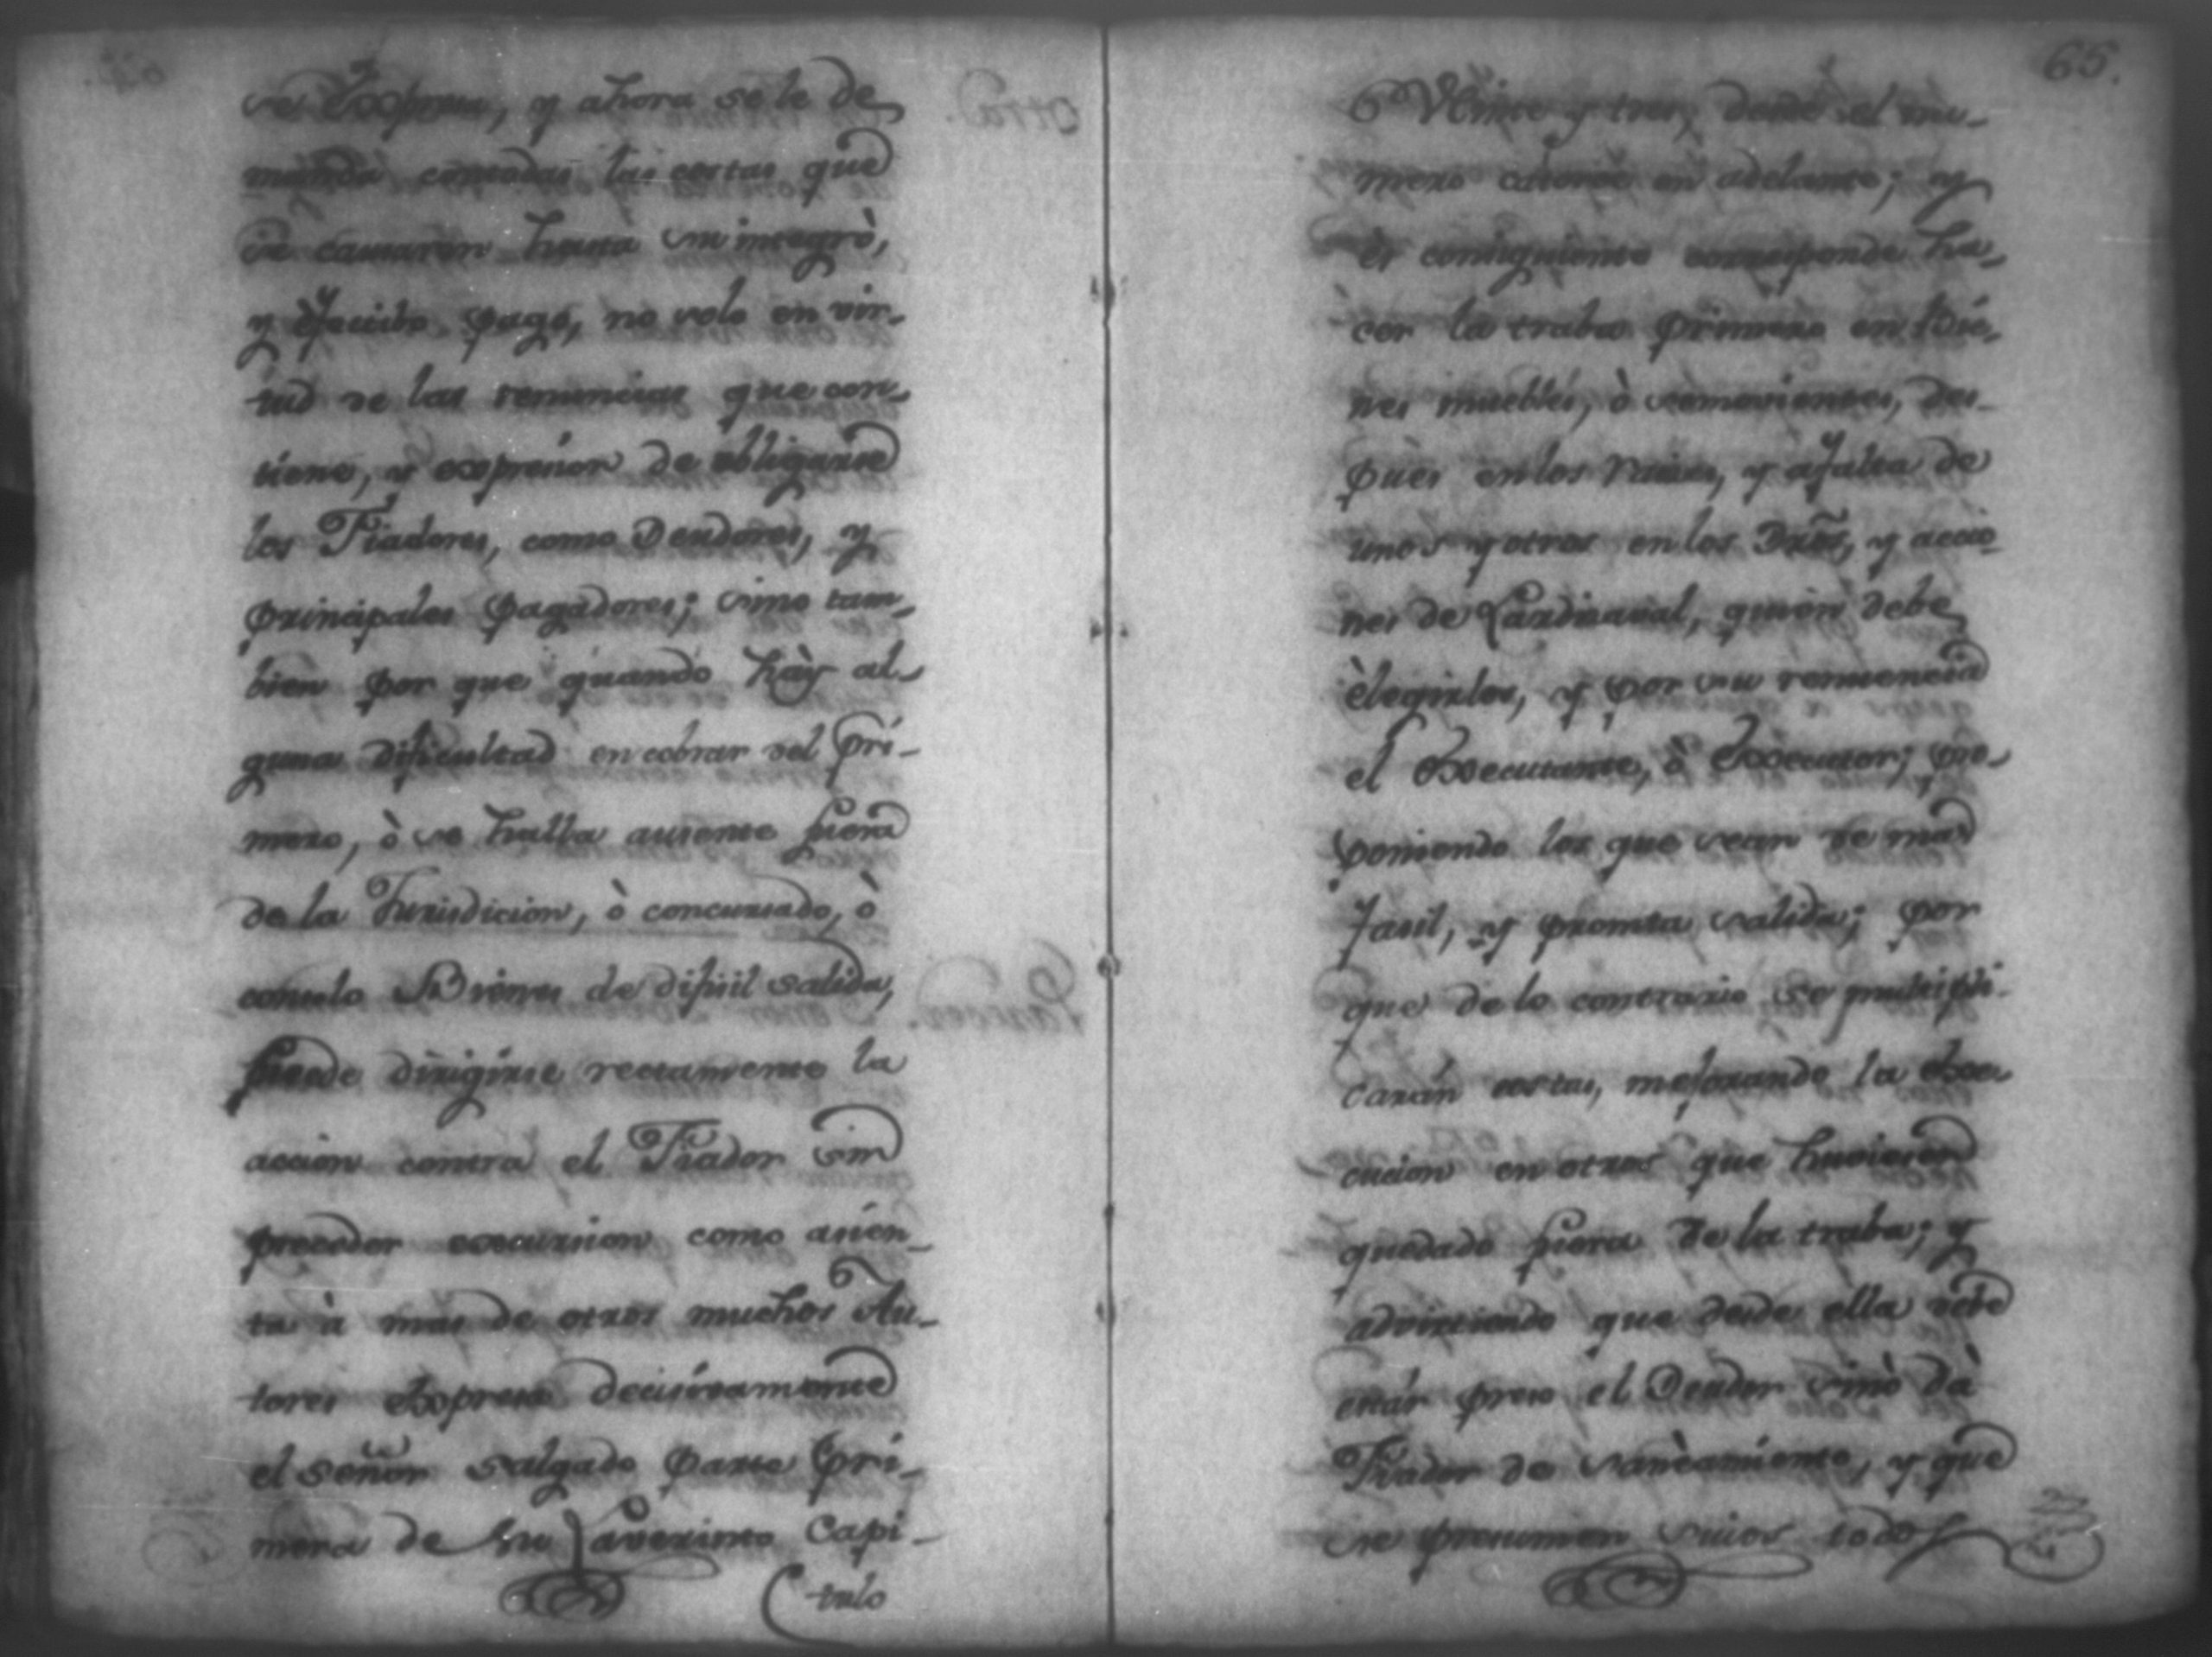 se Expresa, y ahora se le de
manda contodas las costas que
se causaren hasta su integrò,
y efectibo pago, no solo en vir-
tud de las renuncias que con-
tiene, y expresion de obligarse
los Fiadores, como Deudores, y
principales pagadores; sino tam-
bien por que quando hày al-
guna dificultad en cobrar del pri-
mero, ò se halla ausente fuera
de la Jurisdicion, ò concursado, ò
consolo Bienes de difisil salida,
puede dirigirse rectamente la
accion contra el Fiador sin
preceder excursion como asien-
ta à mas de otros muchos Au-
tores Expresa decisivamente
el señor Salgado parte pri-
mera de su Laverinto Capi-
tulo
65.
Veinte y tres desde el nu-
mero catorce en adelante; y
es consiguiente corresponde ha-
cer la traba primero en bie-
nes muebles, ò semovientes, des-
pùes en los raises, y afalta de
unos y otros en los Dros, y accio-
nes de Landaxaval, quien debe
èlegirlos, y por su renuencia
el Executante, ò Executor; pre-
poniendo los que sean de mas
fasil, y promta salida; por
que de lo contrario se multipli-
caràn costas, mejorando la exe-
cucion en otros que huviesen
quedado fuera de la traba; y
advirtiendo que desde ella debe
estàr preso el Deudor sinò dà
Fiador de saneamiento, y que
se presumen suios todos